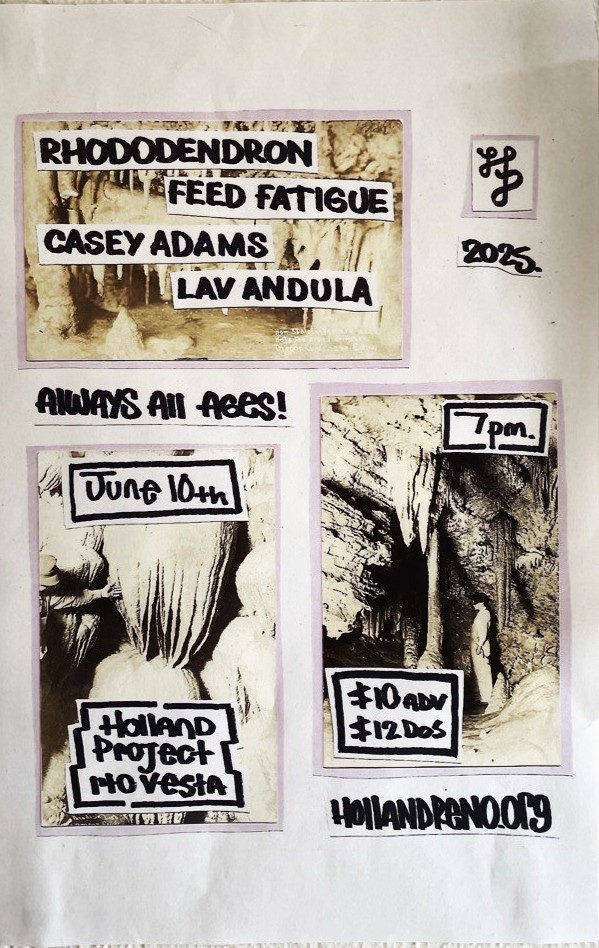 RHODODENDRON
FEED FATIGUE
CASEY ADAMS
LAVANDULA
HP
2025.
AlWAYS All AGES!
7pm.
JUNE 10th
$10 ADV
$12 DOS
HOllAND
PROJECT
140 VESTA
HOllANDRENO.ORG